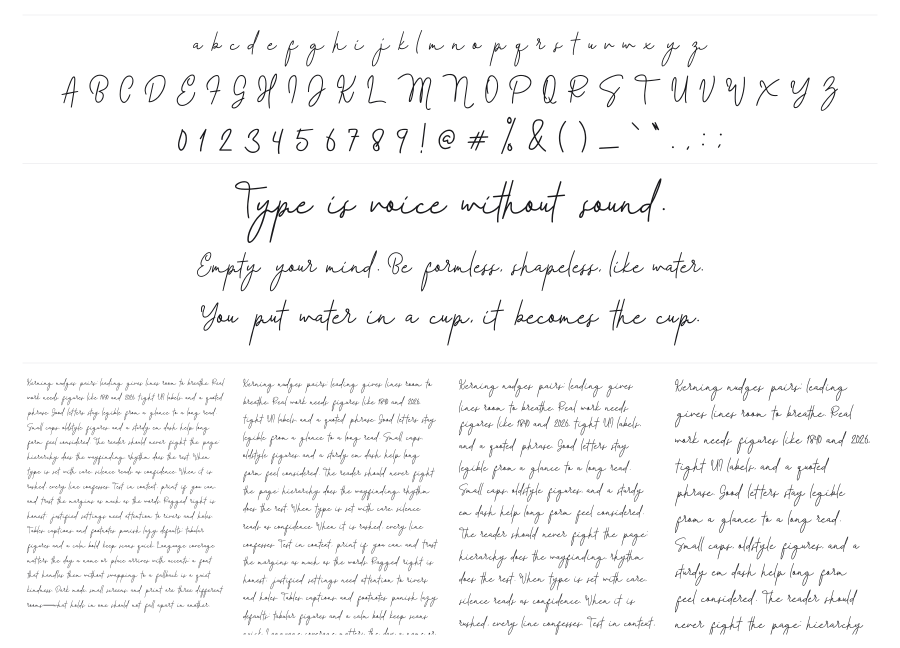 a b c d e f g h i j k l m n o p q r s t u v w x y z
A B C D E F G H I J K L M N O P Q R S T U V W X Y Z
0 1 2 3 4 5 6 7 8 9 ! @ # % & ( ) _ ` `` . , : ;
Type is voice without sound.
Empty your mind. Be formless, shapeless, like water.
You put water in a cup, it becomes the cup.
Kerning nudges pairs; leading gives lines room to breathe. Real
work needs figures like 1910 and 2026, tight UI labels, and a quoted
phrase. Good letters stay legible from a glance to a long read.
Small caps, oldstyle figures, and a sturdy en dash help long
form feel considered. The reader should never fight the page;
hierarchy does the wayfinding, rhythm does the rest. When
type is set with care, silence reads as confidence. When it is
rushed, every line confesses. Test in context, print if you can,
and trust the margins as much as the words. Ragged right is
honest; justified settings need attention to rivers and holes.
Tables, captions, and footnotes punish lazy defaults; tabular
figures and a calm bold keep scans quick. Language coverage
matters the day a name or place arrives with accents; a font
that handles them without swapping to a fallback is a quiet
kindness. Dark mode, small screens, and print are three different
rooms—what holds in one should not fall apart in another.
Kerning nudges pairs; leading gives lines room to
breathe. Real work needs figures like 1910 and 2026,
tight UI labels, and a quoted phrase. Good letters stay
legible from a glance to a long read. Small caps,
oldstyle figures, and a sturdy en dash help long
form feel considered. The reader should never fight
the page; hierarchy does the wayfinding, rhythm
does the rest. When type is set with care, silence
reads as confidence. When it is rushed, every line
confesses. Test in context, print if you can, and trust
the margins as much as the words. Ragged right is
honest; justified settings need attention to rivers
and holes. Tables, captions, and footnotes punish lazy
defaults; tabular figures and a calm bold keep scans
quick. Language coverage matters the day a name or
Kerning nudges pairs; leading gives
lines room to breathe. Real work needs
figures like 1910 and 2026, tight UI labels,
and a quoted phrase. Good letters stay
legible from a glance to a long read.
Small caps, oldstyle figures, and a sturdy
en dash help long form feel considered.
The reader should never fight the page;
hierarchy does the wayfinding, rhythm
does the rest. When type is set with care,
silence reads as confidence. When it is
rushed, every line confesses. Test in context,
Kerning nudges pairs; leading
gives lines room to breathe. Real
work needs figures like 1910 and 2026,
tight UI labels, and a quoted
phrase. Good letters stay legible
from a glance to a long read.
Small caps, oldstyle figures, and a
sturdy en dash help long form
feel considered. The reader should
never fight the page; hierarchy